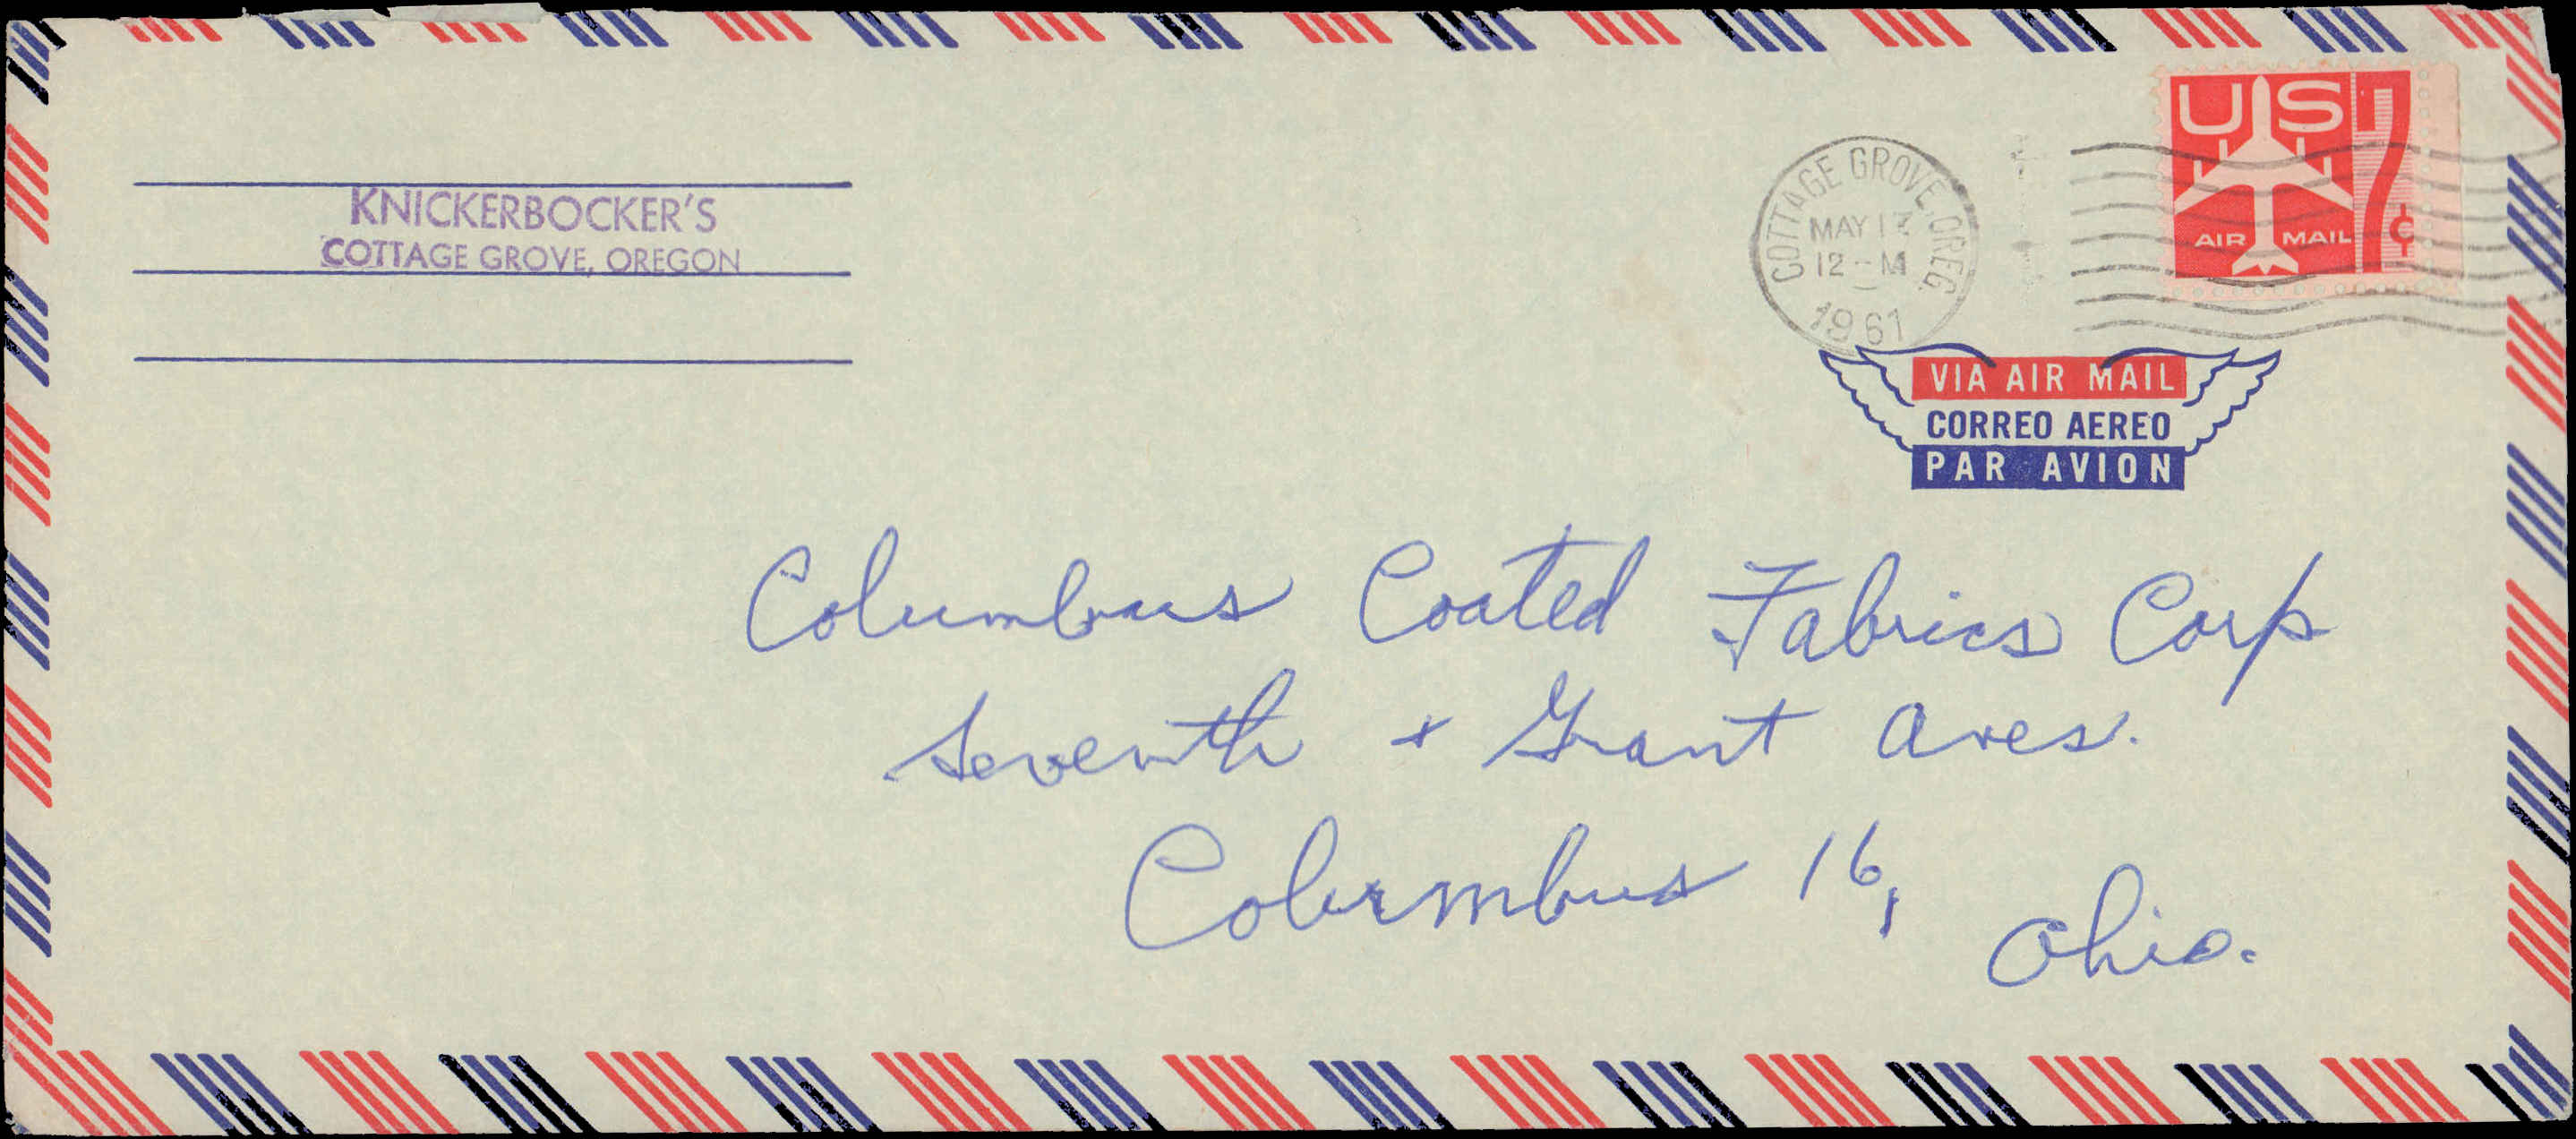 KNICKERBOCKER'S
COTTAGE GROVE, OREGON
COTTAGE GROVE, OREG.
MAY
12-M
1961
US 7¢
AIR MAIL
VIA AIR MAIL
CORREO AEREO
PAR AVION
Columbus Coated Fabrics Corp
Seventh + Grant Aves.
Columbus 16,
Ohio.